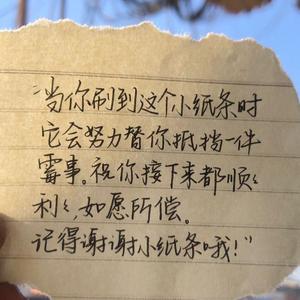 “当你刷到这个小纸条时
它会努力替你抵挡一件
霉事。祝你接下来都顺顺
利利,如愿所偿。
记得谢谢小纸条哦!”